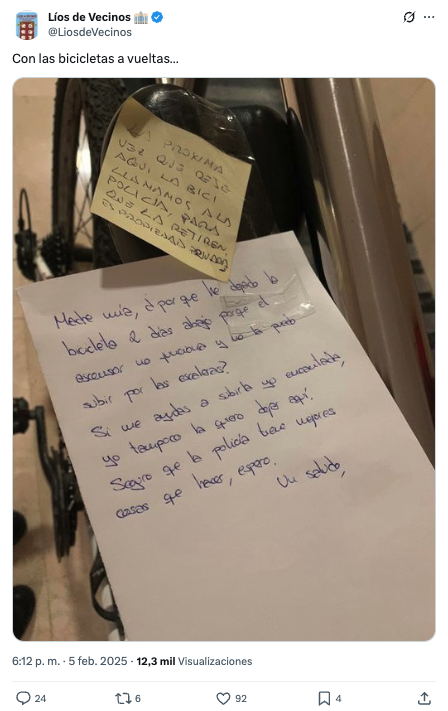 Líos de Vecinos
@LiosdeVecinos
Con las bicicletas a vueltas...
LA PRÓXIMA
VEZ QUE DEJE
AQUÍ LA BICI
LLAMAMOS A LA
POLICÍA, PARA
QUE LA RETIREN,
ES PROPIEDAD PRIVADA
Madre mía, ¿porque he dejado la
bicicleta 2 días abajo porqe el
ascensor no funciona y no la puedo
subir por las escaleras?
Si me ayudas a subirla yo encantada,
yo tampoco la quiero dejar aquí.
Seguro que la policía tiene mejores
cosas que hacer, espero.
Un saludo,
6:12 p. m. · 5 feb. 2025 · 12,3 mil Visualizaciones
24 6 92 4